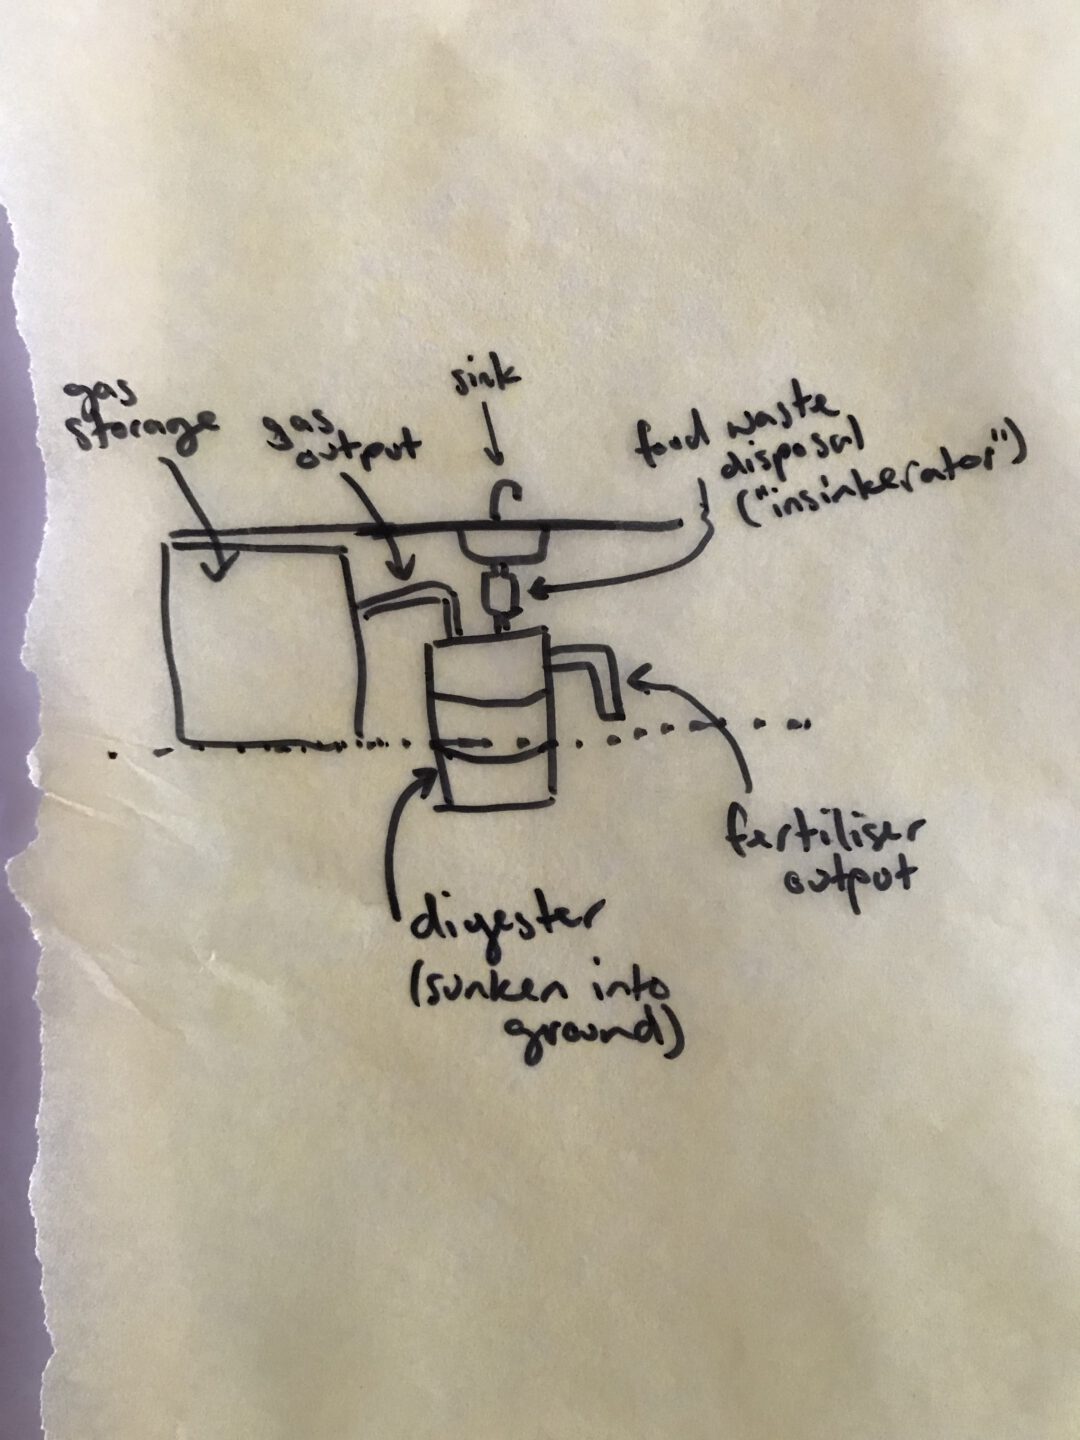 gas
storage
gas
output
sink
food waste
disposal
("insinkerator")
fertiliser
output
digester
(sunken into
ground)